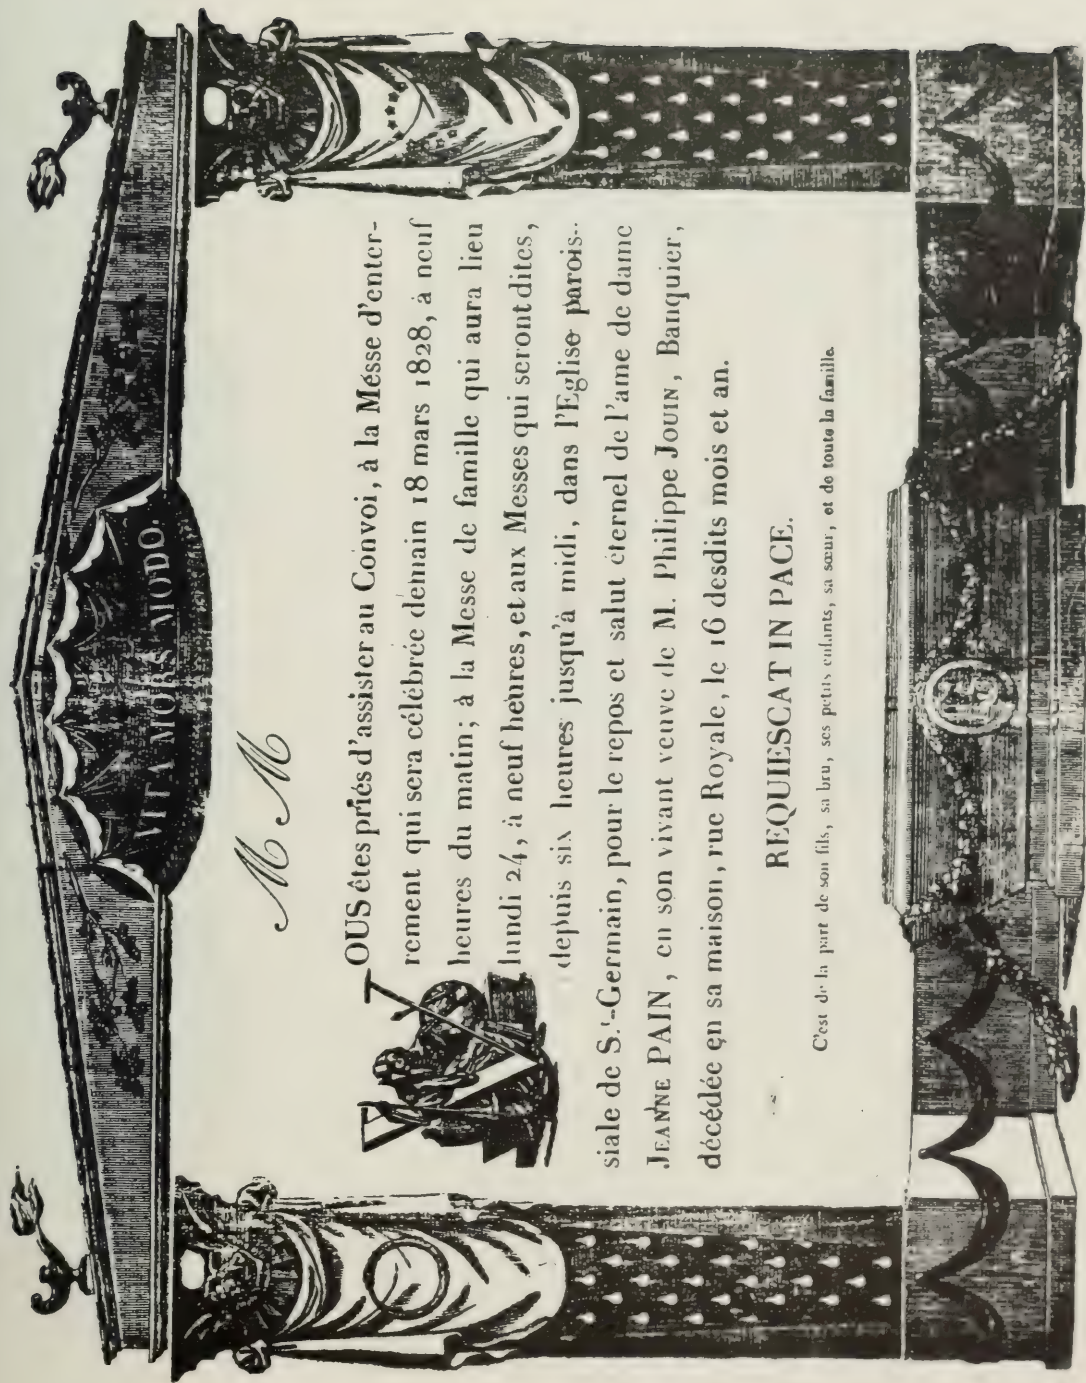 VITA MORS MODO.
M M
VOUS êtes priés d'assister au Convoi, à la Messe d'enter-
rement qui sera célébrée demain 18 mars 1828, à neuf
heures du matin; à la Messe de famille qui aura lieu
lundi 24, à neuf heures, et aux Messes qui seront dites,
depuis six heures jusqu'à midi, dans l'Eglise parois-
siale de S.t-Germain, pour le repos et salut éternel de l'ame de dame
JEANNE PAIN, en son vivant veuve de M. Philippe JOUIN, Banquier,
décédée en sa maison, rue Royale, le 16 desdits mois et an.
REQUIESCAT IN PACE.
C'est de la part de son fils, sa bru, ses petits enfants, sa sœur, et de toute la famille.